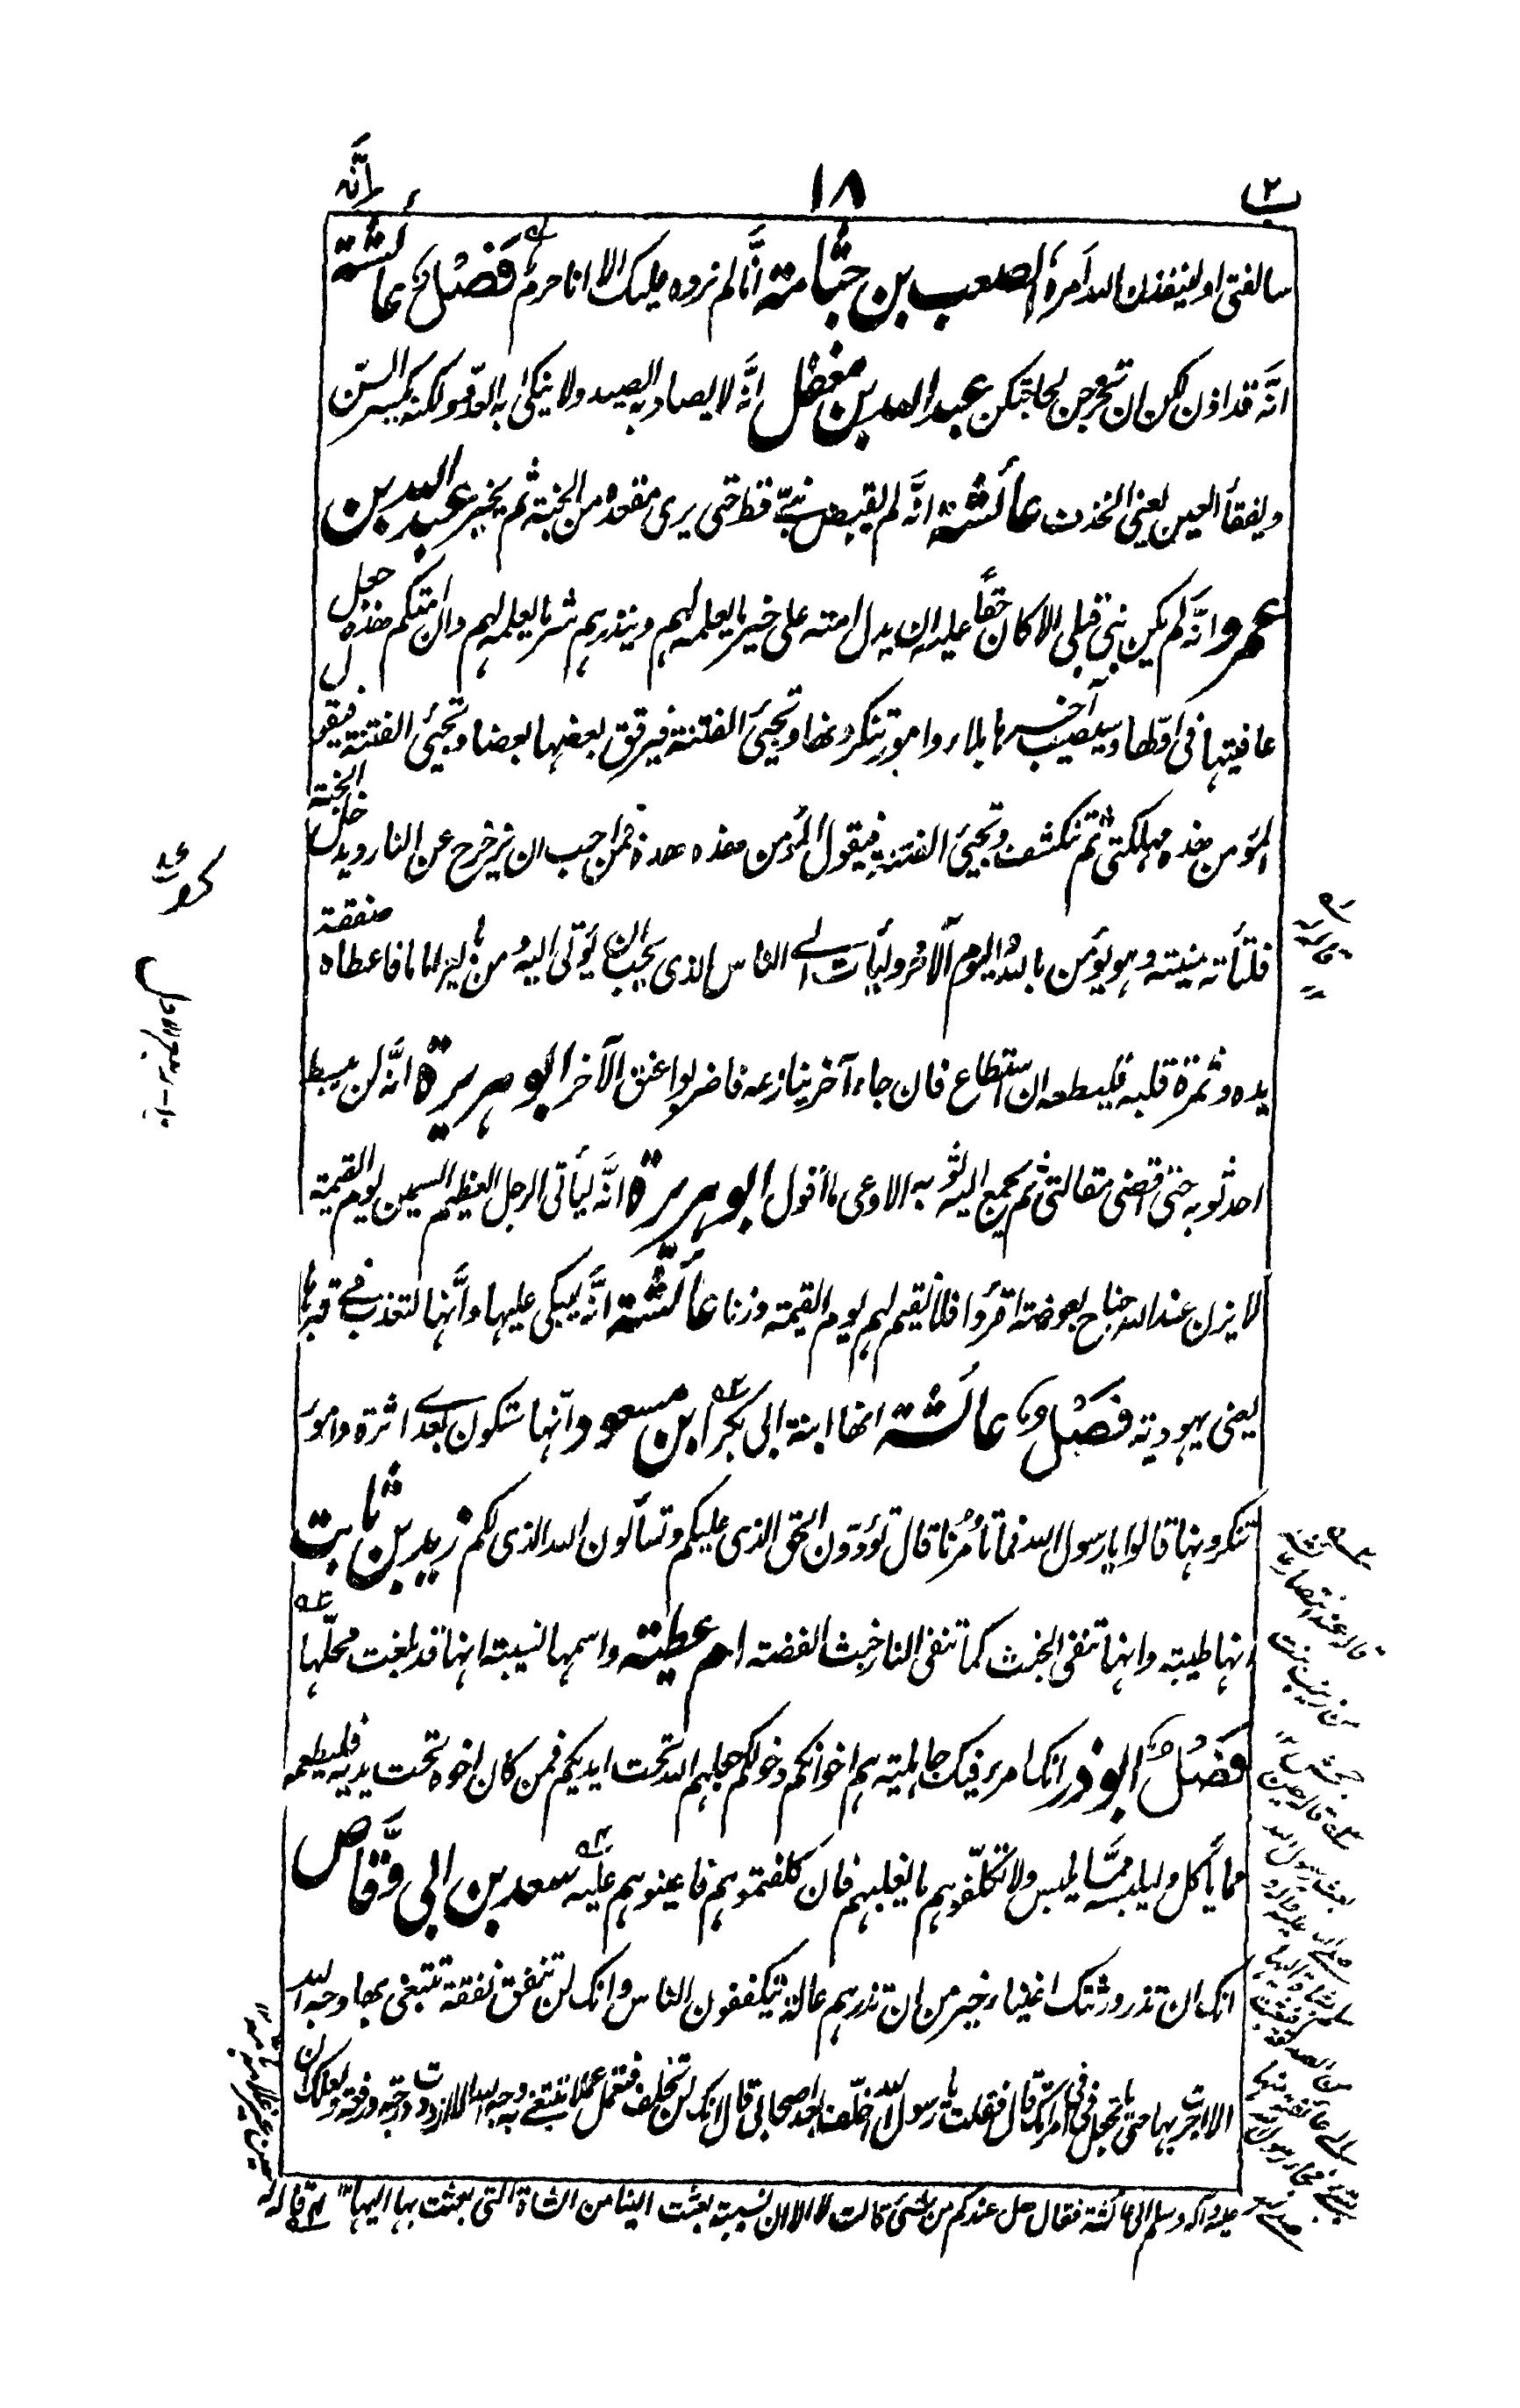 ٢ ١٨ إنَّه
سالفتي او لينفذن الله أمره الصعب بن جثّامة انّا لم نرده عليك الا انا حرم فصل عائشة
انّه قد اذن لكن ان تخرجن لحاجتكن عبد الله بن مغفل انّه لا يصاد به الصيد ولا ينكى به العدوّ ولكنه يكسر السنّ
ويفقأ العين يعني الخذف عائشة انّه لم يقبض نبيّ قط حتى يرى مقعده من الجنة ثم يخير عبد الله بن
عمرو انّه لم يكن نبي قبلي الا كان حقّاً عليه ان يدل امته على خير ما يعلمه لهم وينذرهم شر ما يعلمه لهم وان امتكم هذه جعل
عافيتها في اوّلها وسيصيب آخرها بلاء وامور تنكرونها وتجيئ الفتنة فيرقق بعضها بعضا وتجيئ الفتنة فيقول
المؤمن هذه مهلكتي ثم تنكشف وتجيئ الفتنة فيقول المؤمن هذه هذه فمن احب ان يزحزح عن النار ويدخل الجنة
فلتأته منيته وهو يؤمن بالله واليوم الآخر وليأت الى الناس الذي يحب ان يؤتى اليه ومن بايع اماما فاعطاه صفقة
يده وثمرة قلبه فليطعه ان استطاع فان جاء آخر ينازعه فاضربوا عنق الآخر ابو هريرة انّه لن يبسط
احد ثوبه حتى اقضي مقالتي ثم يجمع اليه ثوبه الا وعى ما أقول ابو هريرة انّه ليأتي الرجل العظيم السمين يوم القيمة
لا يزن عند الله جناح بعوضة اقرؤا فلا نقيم لهم يوم القيمة وزنا عائشة انّه ليبكى عليها وانّها لتعذب في قبرها
يعني يهودية فصل عائشة انها ابنة ابي بكر ابن مسعود انّها ستكون بعدي اثرة وامور
تنكرونها قالوا يا رسول الله فما تأمرنا قال تؤدّون الحق الذي عليكم وتسألون الله الذي لكم زيد بن ثابت
انها طيبة وانها تنفي الخبث كما تنفي النار خبث الفضة ام عطية واسمها نسيبة انها قد بلغت محلّها
فصل ابو ذر انك امرء فيك جاهلية هم اخوانكم وخولكم جعلهم الله تحت ايديكم فمن كان اخوه تحت يديه فليطعمه
مما يأكل وليلبسه ممّا يلبس ولا تكلّفوهم ما يغلبهم فان كلفتموهم فاعينوهم عليه سعد بن ابي وقّاص
انك ان تذر ورثتك اغنياء خير من ان تذرهم عالة يتكففون الناس وانك لن تنفق نفقة تبتغي بها وجه الله
الا اجرت بها حتى ما تجعل في في امرأتك قال فقلت يا رسول الله اخلّف بعد اصحابي قال انك لن تخلف فتعمل عملا تبتغي به وجه الله الا ازددت به درجة ورفعة ولعلك ان
عليه وآله وسلم الى عائشة فقال هل عندكم من شيئ قالت لا الا ان نسيبة بعثت الينا من الشاة التي بعثت بها اليها قاله